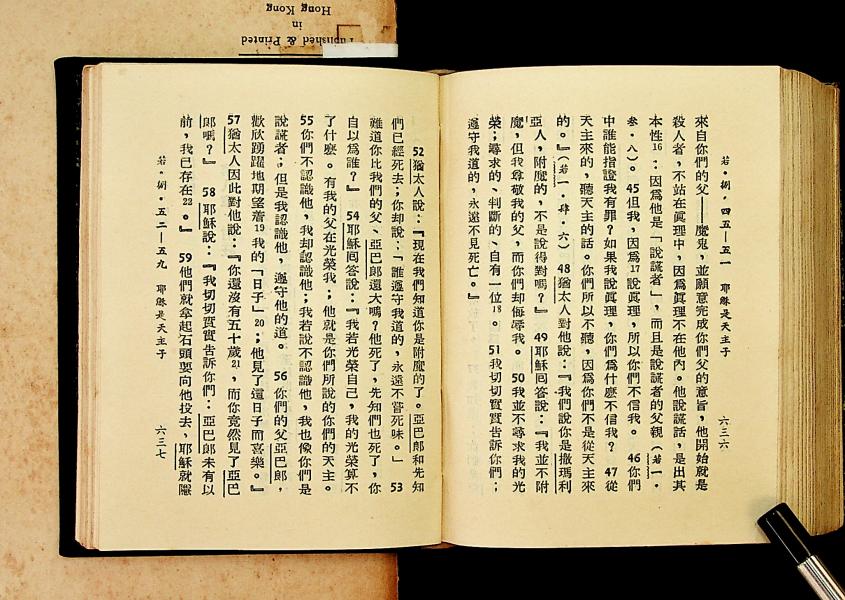 若・捌・四五—五一 耶穌是天主子 六三六
來自你們的父——魔鬼，並願意完成你們父的意旨，他開始就是
殺人者，不站在眞理中，因爲眞理不在他內。他說謊話，是出其
本性16：因爲他是「說謊者」，而且是說謊者的父親（若一・
叁・八）。45但我，因爲17說眞理，所以你們不信我。46你們
中誰能指證我有罪？如果我說眞理，你們爲什麽不信我？47從
天主來的，聽天主的話。你們所以不聽，因爲你們不是從天主來
的。』（若一・肆・六）48猶太人對他說：『我們說你是撒瑪利
亞人，附魔的，不是說得對嗎？』49耶穌囘答說：『我並不附
魔，但我尊敬我的父，而你們却侮辱我。50我並不尋求我的光
榮；尋求的、判斷的、自有一位18。51我切切實實告訴你們；
遵守我道的，永遠不見死亡。』
52猶太人說：『現在我們知道你是附魔的了。亞巴郎和先知
們已經死去；你却說：「誰遵守我道的，永遠不嘗死味。」53
難道你比我們的父、亞巴郎還大嗎？他死了，先知們也死了，你
自以爲誰？』54耶穌囘答說：『我若光榮自己，我的光榮算不
了什麽。有我的父在光榮我；他就是你們所說的你們的天主。
55你們不認識他，我却認識他；我若說不認識他，我也像你們是
說謊者；但是我認識他，遵守他的道。56你們的父亞巴郎，
歡欣踴躍地期望着19我的「日子」20；他見了這日子而喜樂。』
57猶太人因此對他說：『你還沒有五十歲21，而你竟然見了亞巴
郎嗎？』58耶穌說：『我切切實實告訴你們：亞巴郎未有以
前，我已存在22。』59他們就拿起石頭要向他投去，耶穌就隱
若・捌・五二—五九 耶穌是天主子 六三七
Published & Printed
in
Hong Kong